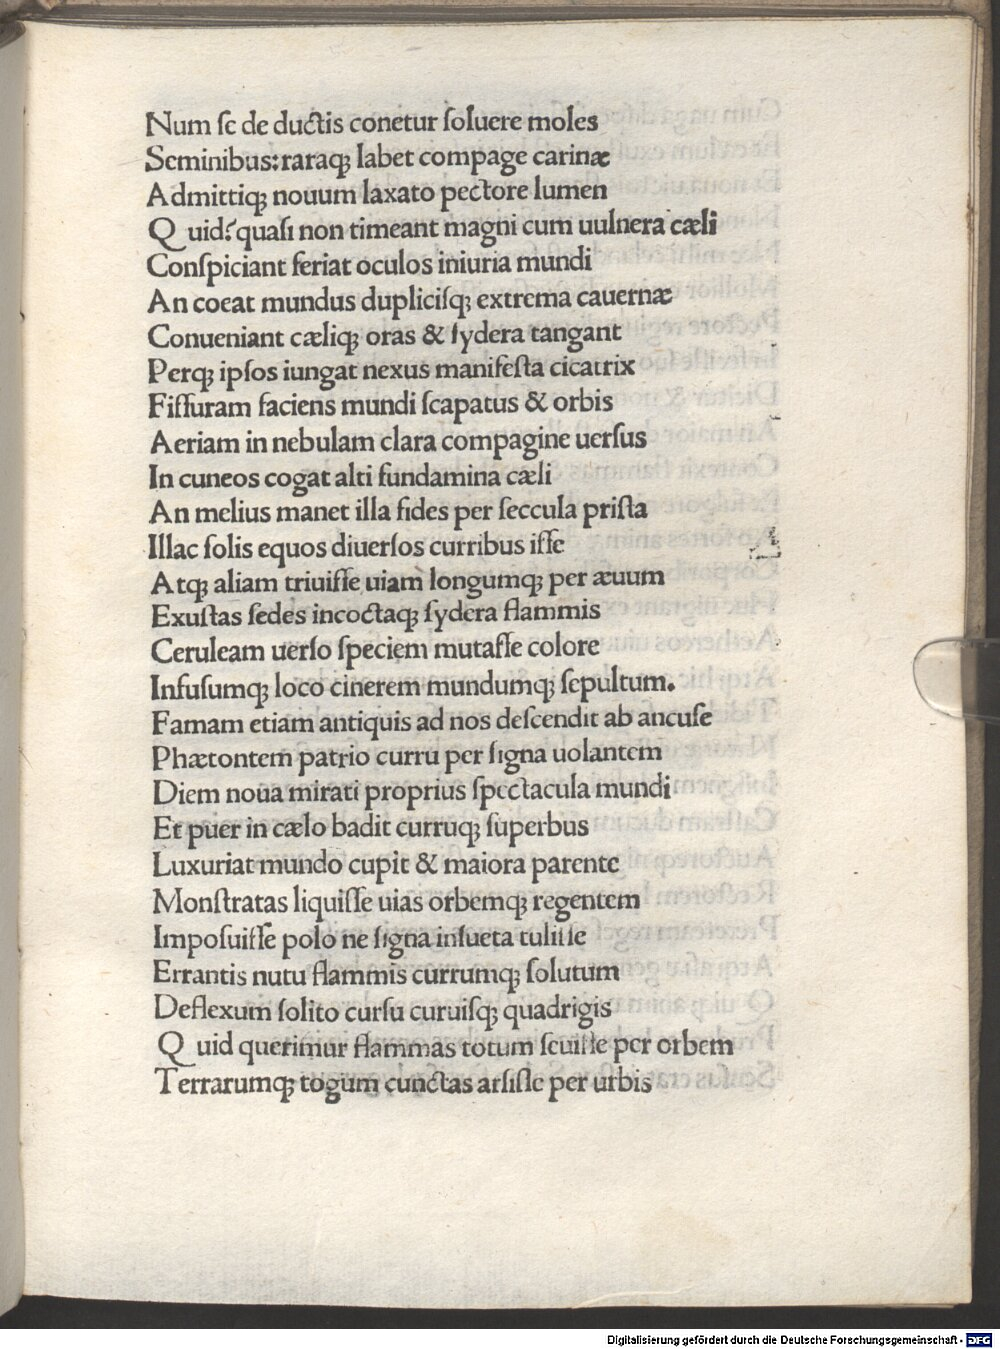 Num ſe de ductis conetur ſoluere moles
Seminibus: raraqꝫ labet compage carinæ
Admittiqꝫ nouum laxato pectore lumen
Quid? quaſi non timeant magni cum uulnera cæli
Conſpiciant feriat oculos iniuria mundi
An coeat mundus dupliciſqꝫ extrema cauernæ
Conueniant cæliqꝫ oras & ſydera tangant
Perqꝫ ipſos iungat nexus manifeſta cicatrix
Fiſſuram faciens mundi ſcapatus & orbis
Aeriam in nebulam clara compagine uerſus
In cuneos cogat alti fundamina cæli
An melius manet illa fides per ſeccula priſta
Illac ſolis equos diuerſos curribus iſſe
Atqꝫ aliam triuiſſe uiam longumqꝫ per æuum
Exuſtas ſedes incoctaqꝫ ſydera flammis
Ceruleam uerſo ſpeciem mutaſſe colore
Infuſumqꝫ loco cinerem mundumqꝫ ſepultum.
Famam etiam antiquis ad nos deſcendit ab ancuſe
Phætontem patrio curru per ſigna uolantem
Diem noua mirati proprius ſpectacula mundi
Et puer in cælo badit curruqꝫ ſuperbus
Luxuriat mundo cupit & maiora parente
Monſtratas liquiſſe uias orbemqꝫ regentem
Impoſuiſſe polo ne ſigna inſueta tuliſſe
Errantis nutu flammis currumqꝫ ſolutum
Deflexum ſolito curſu curuiſqꝫ quadrigis
Quid querimur flammas totum ſeuiſſe per orbem
Terrarumqꝫ togum cunctas arſiſſe per urbis
Digitalisierung gefördert durch die Deutsche Forschungsgemeinschaft - DFG